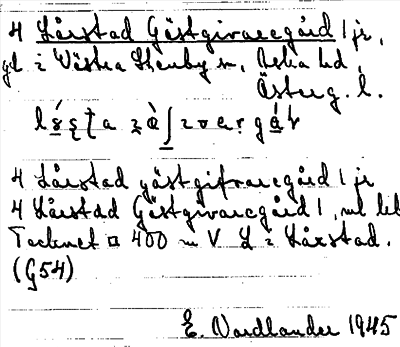 4 Lårstad Gästgivaregård 1 jr,
gd i Västra Stenby sn, Aska hd,
Österg. l.
4 Lårstad gästgifvaregård 1 jr
4 Lårstad Gästgivaregård 1, ml lil
Tecknet ¤ 400 m V L i Lårstad.
(G54)
E. Nordlander 1945